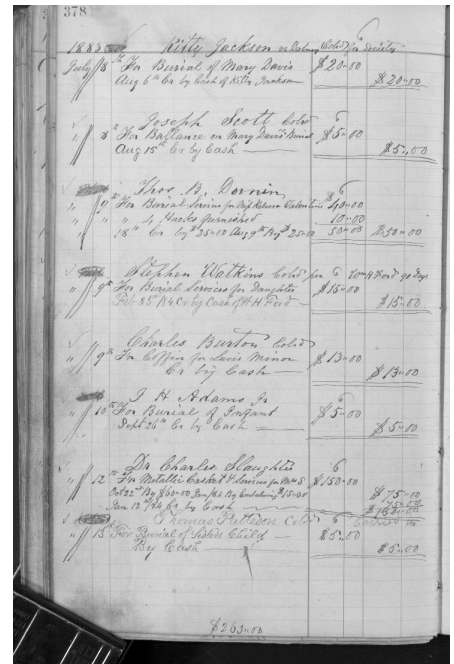 378
1883 Kitty Jackson or Cold for Society
July 8th For Burial of Mary Davis $20-00
Aug 6th Cr by Cash of Kitty Jackson $20-00
Joseph Scott Cold 6
" 8th For Ballance on Mary Davis Burial $5-00
Aug 15th Cr by Cash $5-00
Thos. B. Dornin 6
" 9th For Burial Services for Rebecca Valentine $40-00
" " " 4 Hacks furnished 10-00
" 18th Cr by $25-00 Aug 9th By $25-00 50-00 $50-00
Stephen Watkins Cold per 6 Ford 90 Days
" 9th For Burial Services for Daughter $15-00
Feb 25th 84 Cr by Cash of H H Ford $15-00
Charles Burton Cold
" 9th For Coffin for Levis Minor $13-00
Cr by Cash $13-00
J H Adams Jr 6
" 10th For Burial of Infant $5-00
Sept 26th Cr by Cash $5-00
Dr Charles Slaughter 6
" 12th For Metallic Casket & Services for Mrs S $150-00
Oct 22nd By $60-00 By $15-00 $75-00
Jan 12th 84 Cr by Cash 75-00
$150-00
Thomas Pettison Cold
" 15th For Burial of Sisters Child $5-00
By Cash $5-00
$263-00